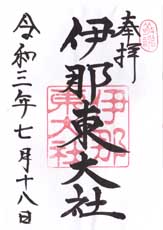 奉拝
伊那東大社
伊那
東大社
令和三年七月十八日